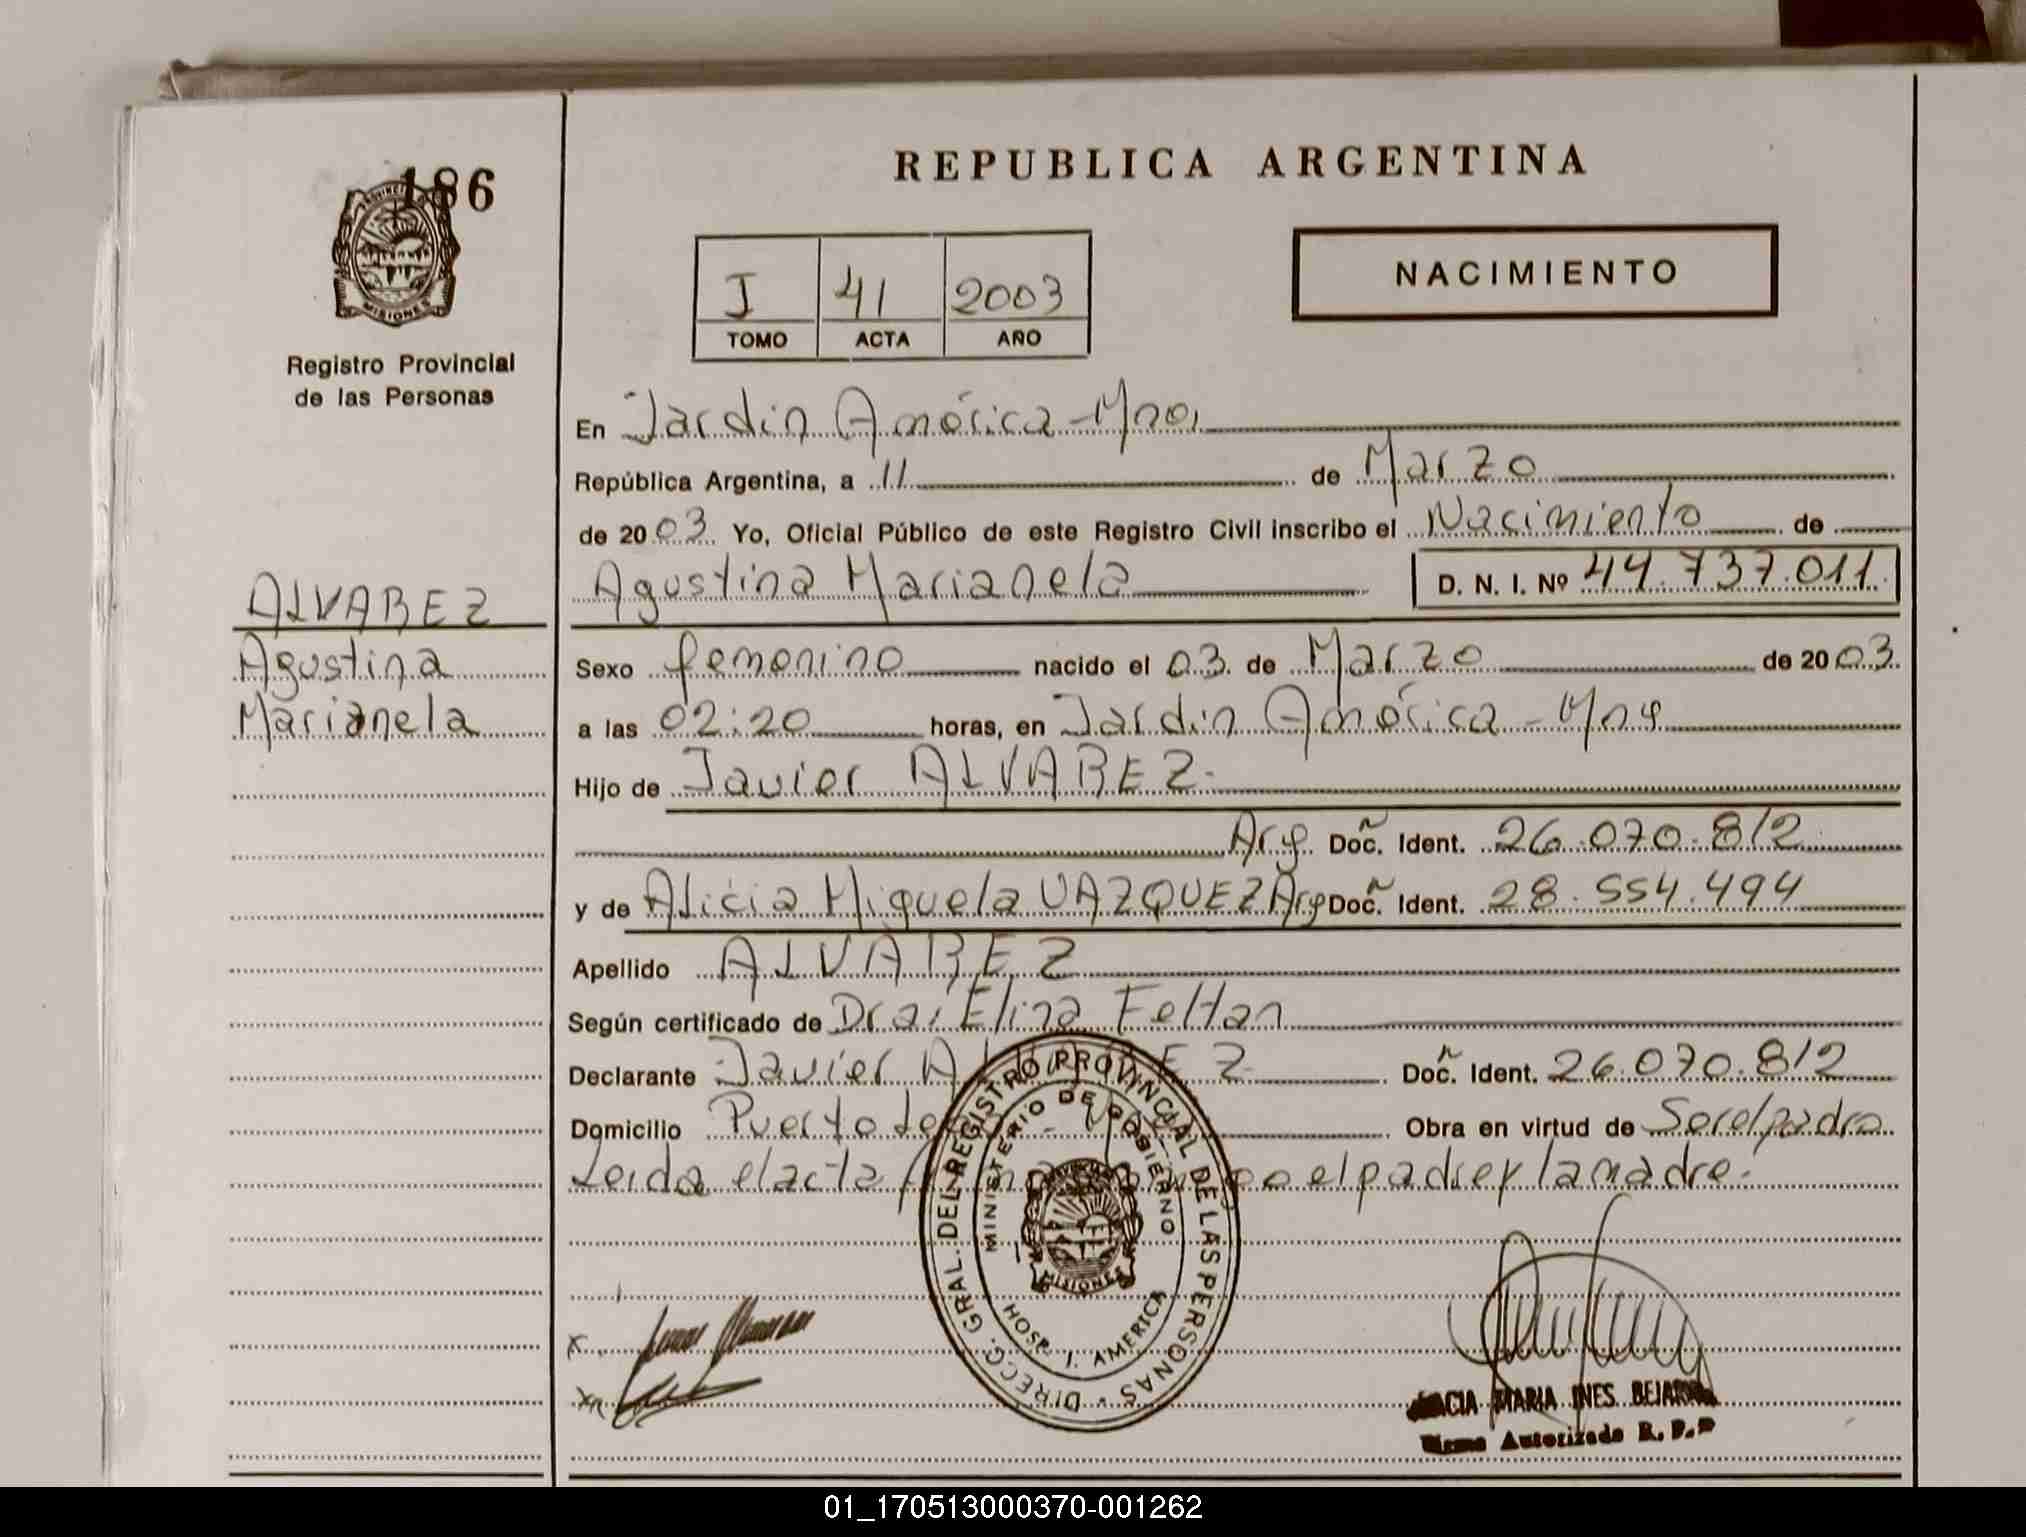 186
MISIONES
Registro Provincial
de las Personas
REPUBLICA ARGENTINA
NACIMIENTO
I 41 2003
TOMO ACTA AÑO
En Jardin América - Mnes.
República Argentina, a 11 de Marzo
de 2003 Yo, Oficial Público de este Registro Civil inscribo el Nacimiento de
Agustina Marianela D. N. I. Nº 44.737.011
ALVAREZ
Agustina
Marianela
Sexo femenino nacido el 03 de Marzo de 2003
a las 02:20 horas, en Jardin América - Mnes
Hijo de Javier ALVAREZ
Arg Doc. Ident. 26.070.812
y de Alicia Miguela VAZQUEZ Arg Doc. Ident. 28.554.494
Apellido ALVAREZ
Según certificado de Dra. Elina Feltan
Declarante Javier ALVAREZ Doc. Ident. 26.070.812
Domicilio Puerto Obra en virtud de Ser el padre
Leida el acta el padre y la madre.
DIRECC. GRAL. DEL REGISTRO PROVINCIAL DE LAS PERSONAS
MINISTERIO DE GOBIERNO
MISIONES
HOSP. J. AMERICA
MARIA INES
Firma Autorizada R. P. P
01_170513000370-001262